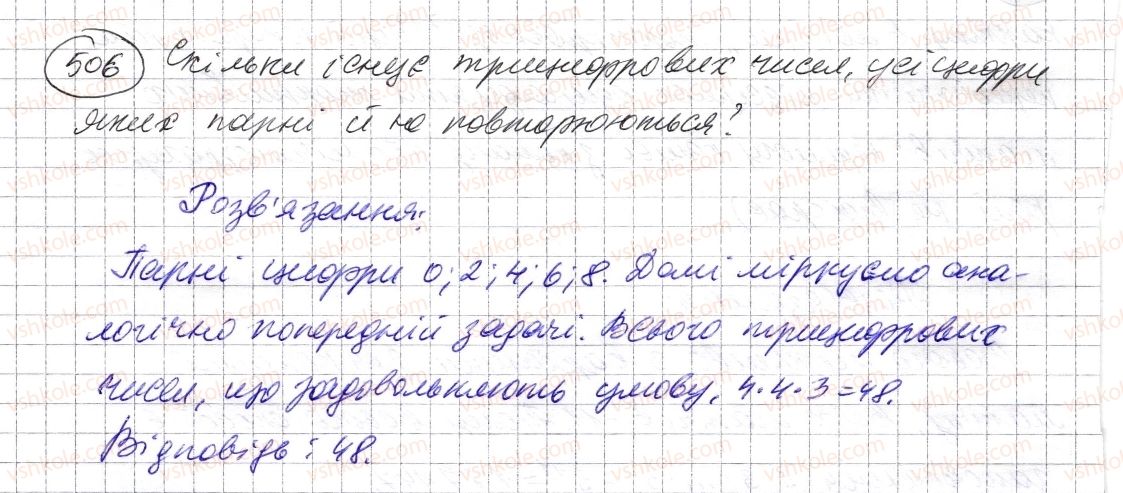 506 Скільки існує трицифрових чисел, усі цифри
яких парні й не повторюються?
Розв'язання:
Парні цифри 0; 2; 4; 6; 8. Далі міркуємо ана-
логічно попередній задачі. Всього трицифрових
чисел, що задовольняють умову, 4·4·3=48.
Відповідь: 48.